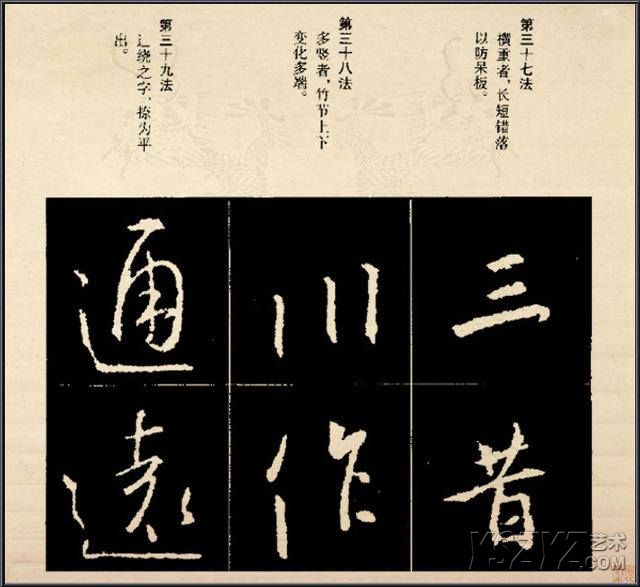 第三十七法
横重者，长短错落
以防呆板。
第三十八法
多竖者，竹节上下
变化多端。
第三十九法
辶绕之字，捺为平
出。
三
昔
川
作
通
遠
YSZYZ艺术